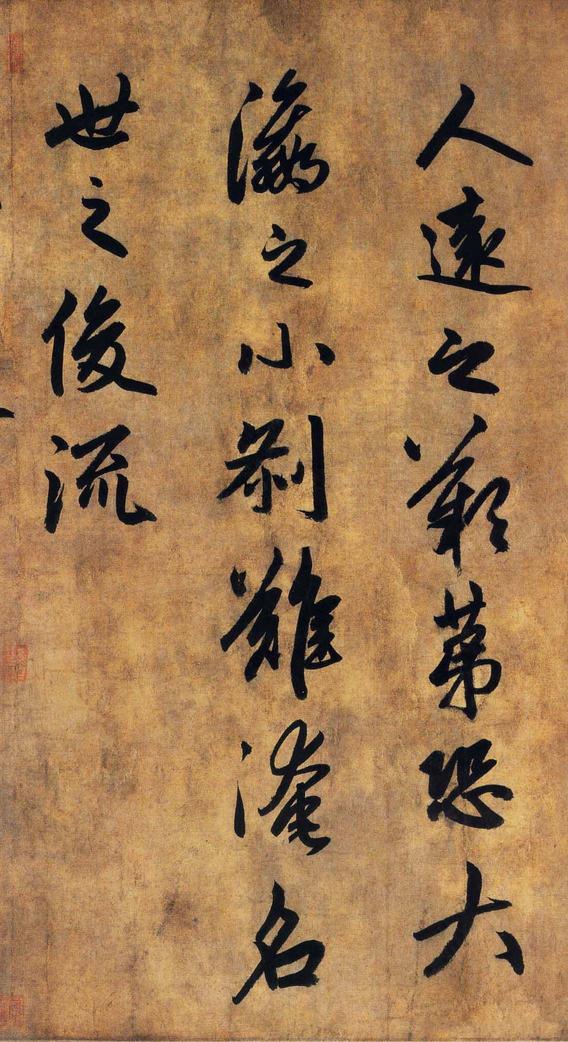 人遠之歎第恐大
瀛之小剎難淹名
世之俊流